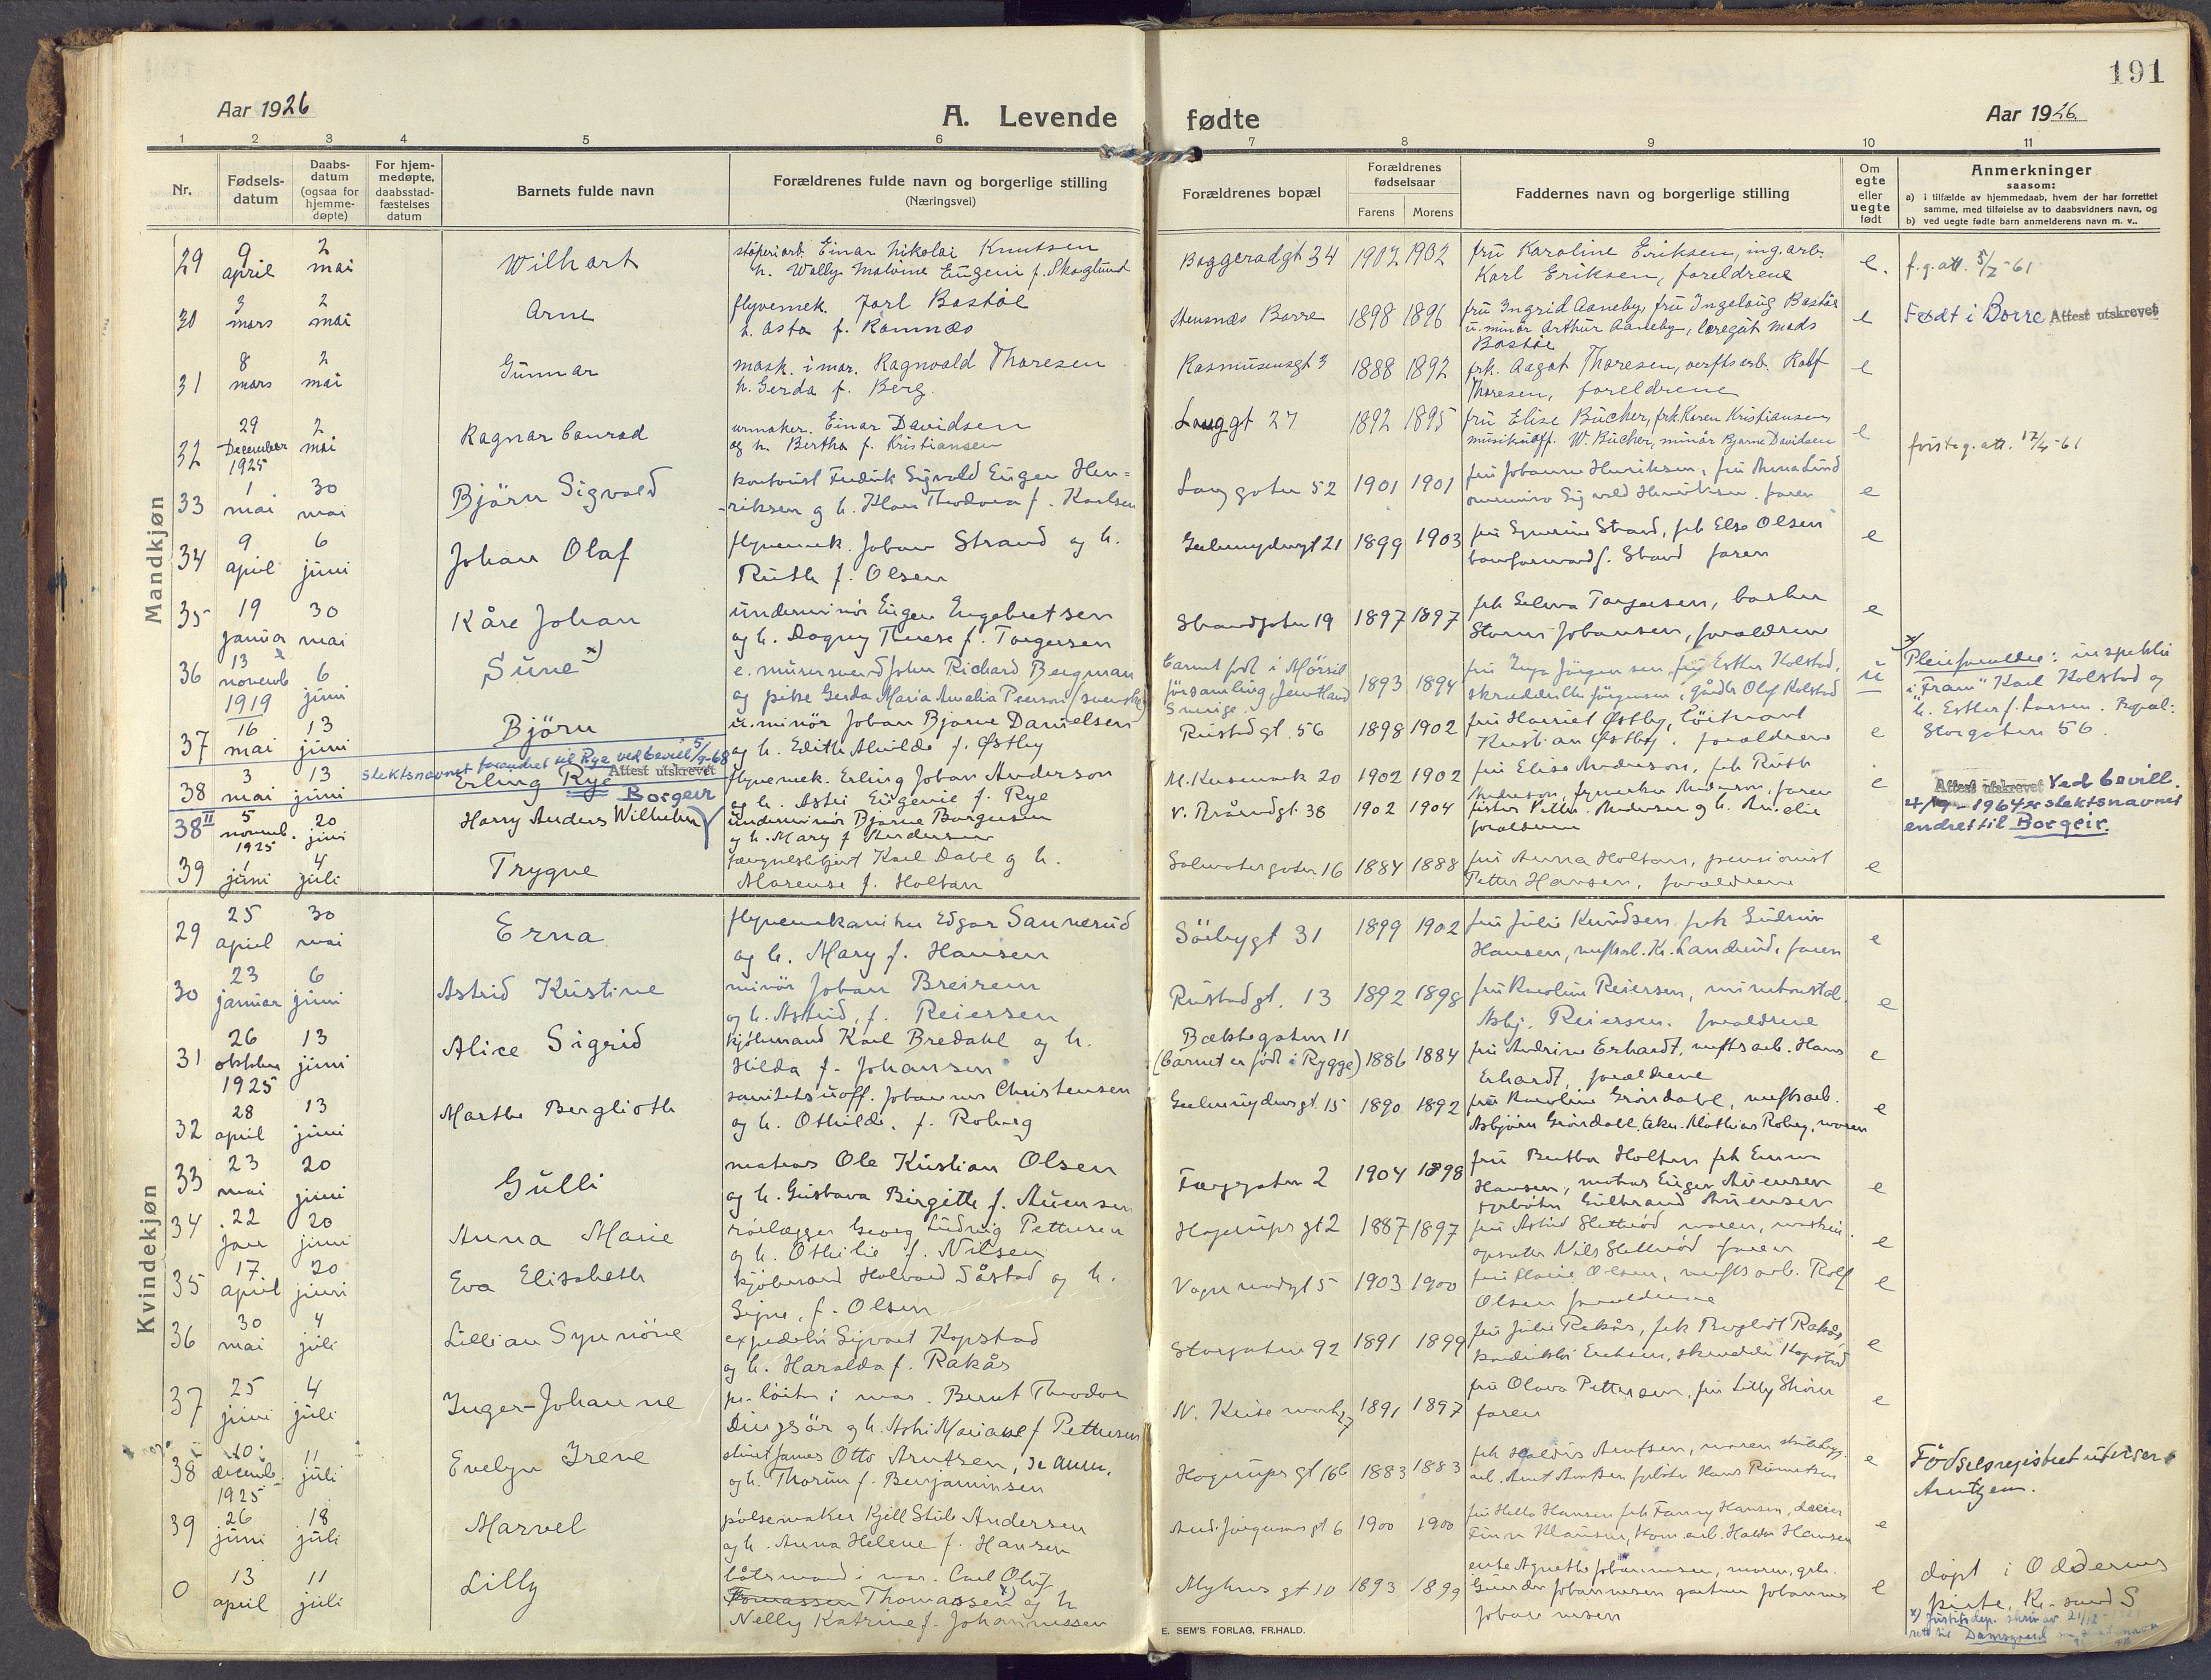 191
Aar 1926
A. Levende fødte
Aar 1926.
1 2 3 4 5 6 7 8 9 10 11
Nr.
Fødsels-
datum
Daabs-
datum
(ogsaa for
hjemme-
døpte)
For hjem-
medøpte,
daabsstad-
fæstelses
datum
Barnets fulde navn
Forældrenes fulde navn og borgerlige stilling
(Næringsvei)
Forældrenes bopæl
Forældrenes
fødselsaar
Farens Morens
Faddernes navn og borgerlige stilling
Om
egte
eller
uegte
født
Anmerkninger
saasom:
a) i tilfælde av hjemmedaab, hvem der har forrettet
samme, med tilføielse av to daabsvidners navn, og
b) ved uegte fødte barn anmelderens navn m. v..
Mandkjøn
29 9 april 2 mai Wilhart
støperiarb. Einar Nikolai Knutsen
h. Wally Malvine Eugeni f. Skoglund
Baggerødgt 34 1902 1902
frü Karoline Eriksen, ing. arb.
Karl Eriksen, foreldrene
e. f.g. att. 61
30 3 mars 2 mai Arne
flyvemek. Jarl Bastøe
h. Asta f. Ramnæs
Stensnæs Borre 1898 1896
frü Ingrid Aaneby, frü Ingebaüg Bastøe
ü. minør Arthür Aaneby, Mads
Bastøe
e Født i Borre Attest utskrevet
31 8 mars 2 mai Günnar
mask. i mar. Ragnvald Thoresen
h. Gerda f. Berg.
Rasmüsensgt 3 1888 1892
frk. Aagot Thoresen, verftsarb. Rolf
Thoresen, foreldrene
e
32 29 December 1925 2 mai Ragnar Conrad
urmaker. Einar Davidsen
og h. Bertha f. Kristiansen
Langgt 27 1892 1895
frü Elise Bücher, frk. Karen Kristiansen
W. Bücher, minør Bjarne Davidsen
e 61
33 1 mai 30 mai Björn Sigvald
kontorist Fredrik Sigvald Eugen Hen=
-riksen g h. Theodora f. Karlsen
Langgaten 52 1901 1901
frü Johanne Henriksen, frü Anna Lund
Sigvald Henriksen. faren
e
34 9 april 6 jüni Johan Olaf
flyvemek. Johan Strand og h.
Rüth f. Olsen
21 1899 1903
frü Strand, frk Else Olsen
Strand faren
e
35 19 janüar 30 mai Kåre Johan
ünderminör Eugen Engebretsen
og h. Dagny Therese f. Torgersen
Strandgaten 19 1897 1897
frk Torgersen, barber
Johansen, foraldrene
e
36 13 novemb 1919 6 jüni Süne x)
e. mürersvend John Richard Bergman
og pike Gerda Maria Amalia Peerson (svenske)
Barnet født i Mörsil
församling Jemtland
Sverige. 1893 1894
frü Inga Jörgensen, frü Esther Kolstad,
Jørgensen, Olaf Kolstad
ü
x) Pleieforældre: inspektör
i "Fram" Karl Kolstad og
h. Esther f. Larsen. Bopæl:
Storgaten 56.
37 16 mai 13 jüni Björn
ü. minör Johan Bjarne Danielsen
og h. Edith Alvilde f. Østby
Rüstadgt. 56 1898 1902
frü Harriet Østby, löitnant
Kristian Østby, foraldrene
e
Slektsnavnet forandret til Rye ved bevill. 5/9-68
Attest utskrevet
38 3 mai 13 jüni Erling Rye
flyvemek. Erling Johan Anderson
og h. Astri Eügenie f. Rye
20 1902 1902
frü Elise Anderson, frk Rüth
Anderson, Anderson, faren
e
38 II 5 novemb. 1925 20 jüni Harry Anders Wilhelm Borgeir
ünderminör Bjarne Borgersen
og h. Mary f. Andersen
38 1902 1904
Petter Andersen og h. Amalie
foraldrene
Attest utskrevet Ved bevill.
1964 er slektsnavnet
endret til Borgeir.
39 1 jüni 4 jüli Trygve
fængselsbetjent Karl Dahl g h.
Marense f. Holtan
Salvatergaten 16 1884 1888
frü Anna Holtan, pensionist
Petter Hansen, foraldrene
e
Kvindekjøn
29 25 april 30 mai Erna
flyvemekaniker Edgar Sannerüd
og h. Mary f. Hansen
Söebygt 31 1899 1902
frü Jülie Knüdsen. frk Güdrün
Hansen, verftsarb. Kr. faren
e
30 23 janüar 6 jüni Astrid Kristine
minör Johan Breirem
og h. Astrid, f. Reiersen
Rüstadgt. 13 1892 1898
frü Karoline Reiersen,
Asbj. Reiersen. foraldrene
e
31 26 oktober 1925 13 jüni Alice Sigrid
kjölmand Karl Bredahl og h.
Hilda f. Johansen
Bakkegaten 11
(barnet er født i Rygge) 1886 1884
frü Andrine Erhardt, verftsarb. Hans
Erhardt, foraldrene
e
32 28 april 13 jüni Marthe Berglioth
sanitetsüoff. Johannes Christensen
og h. Othilde, f. Roberg
15 1890 1892
frü Karoline Gröndahl, verftsarb.
Asbjørn Gröndahl. Mathias Roberg, moren
e
33 23 mai 20 jüni Gülli
matros Ole Kristian Olsen
og h. Güstava Birgitte f. Aüensen
Færgegaten 2 1904 1898
frü Bertha Holtan frk Emma
Hansen, matros Eügen Aüensen
fyrbøter Gülbrand Aüensen
e
34 22 jan 20 jüni Anna Marie
rörlægger Georg Lüdvig Pettersen
og h. Othilie f. Nilsen
Hagerüps gt 2 1887 1897
frü Astrid Slettröd moren, maskin
Nils Slettröd faren
e
35 17 april 20 jüni Eva Elisabeth
kjölmand Halvard Såstad og h.
Signe, f. Olsen
5 1903 1900
frü Marie Olsen, verftsarb. Rolf
Olsen foraldrene
e
36 30 mai 4 jüli Lillian Synnöve
expeditör Sigvart Kopstad
og h. Haralda f. Rakås
Storgaten 92 1891 1899
frü Jülie Rakås, frk Bergliot Rakås,
Kopstad
e
37 25 jüni 4 jüli Inger-Johanne
pr. löitn i mar. Bernt Theodor
Dingsör g h. Astri Mariane f Pettersen
27 1891 1897
frü Olava Pettersen, frü Lilly
faren
e
38 10 decemb. 1925 11 jüli Evelyn Irene
James Otto Arntsen, se anm.
og h. Thorün f. Benjaminsen
Hagerüps gt 16b 1883 1883
frk Haldis Arntsen, moren
arb. Arnt Arntsen fyrbøter Hans
e
Födselsregistret utviser
Arntzen.
39 26 jüni 18 jüli Marvel
pølsemaker Kjell Stüb Andersen
og h. Anna Helene f. Hansen
And. Jörgensens gt 6 1900 1900
frü Helle Hansen frk Fanny Hansen,
Finn Klausen, kom. arb. Haldor Hansen
e
0 13 april 11 jüli Lilly
båtsmand i mar. Carl Oluf
Thomassen x) og h
Nelly Katrine f. Johannessen
Myhres gt 10 1893 1899
enke Agnethe Johannessen, moren,
Günder Johannesen Johannes
Johannesen
e
döpt i Oddernes
kirke, Kr.-sand S
x) Jüstitsdep. skriv av 21/12
E. SEM'S FORLAG. FR.HALD.